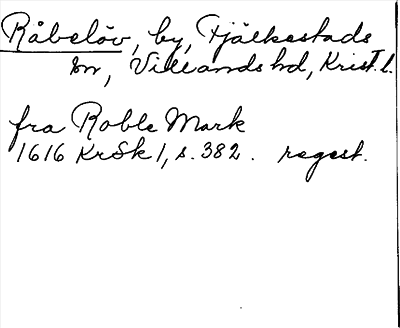 Råbelöv, by, Fjälkestads
sn, Villands hd, Krist. l.
fra Roble Mark
1616 KrSk 1, s. 382. regest.